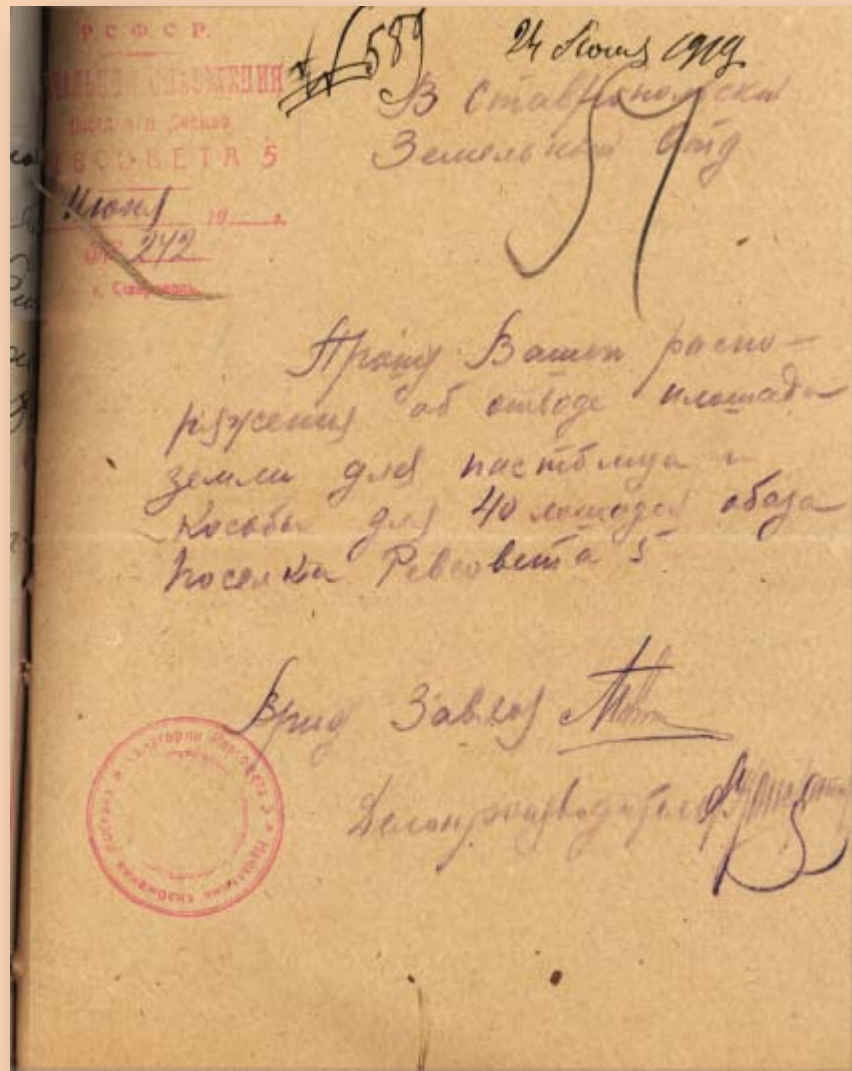 Р С Ф С Р.
СНАБЖЕНИЯ
РЕВСОВЕТА 5
Июня 19 г.
№ 242
г. Ставрополь
№ 589
24 Июня 1919
В Ставропольский
Земельный Отд
Прошу Вашего распо-
ряжения об отводе площади
земли для пастбища и
Кособы для 40 лошадей обоза
поселка Ревсовета 5
Врид Завхоз
Делопроизводитель